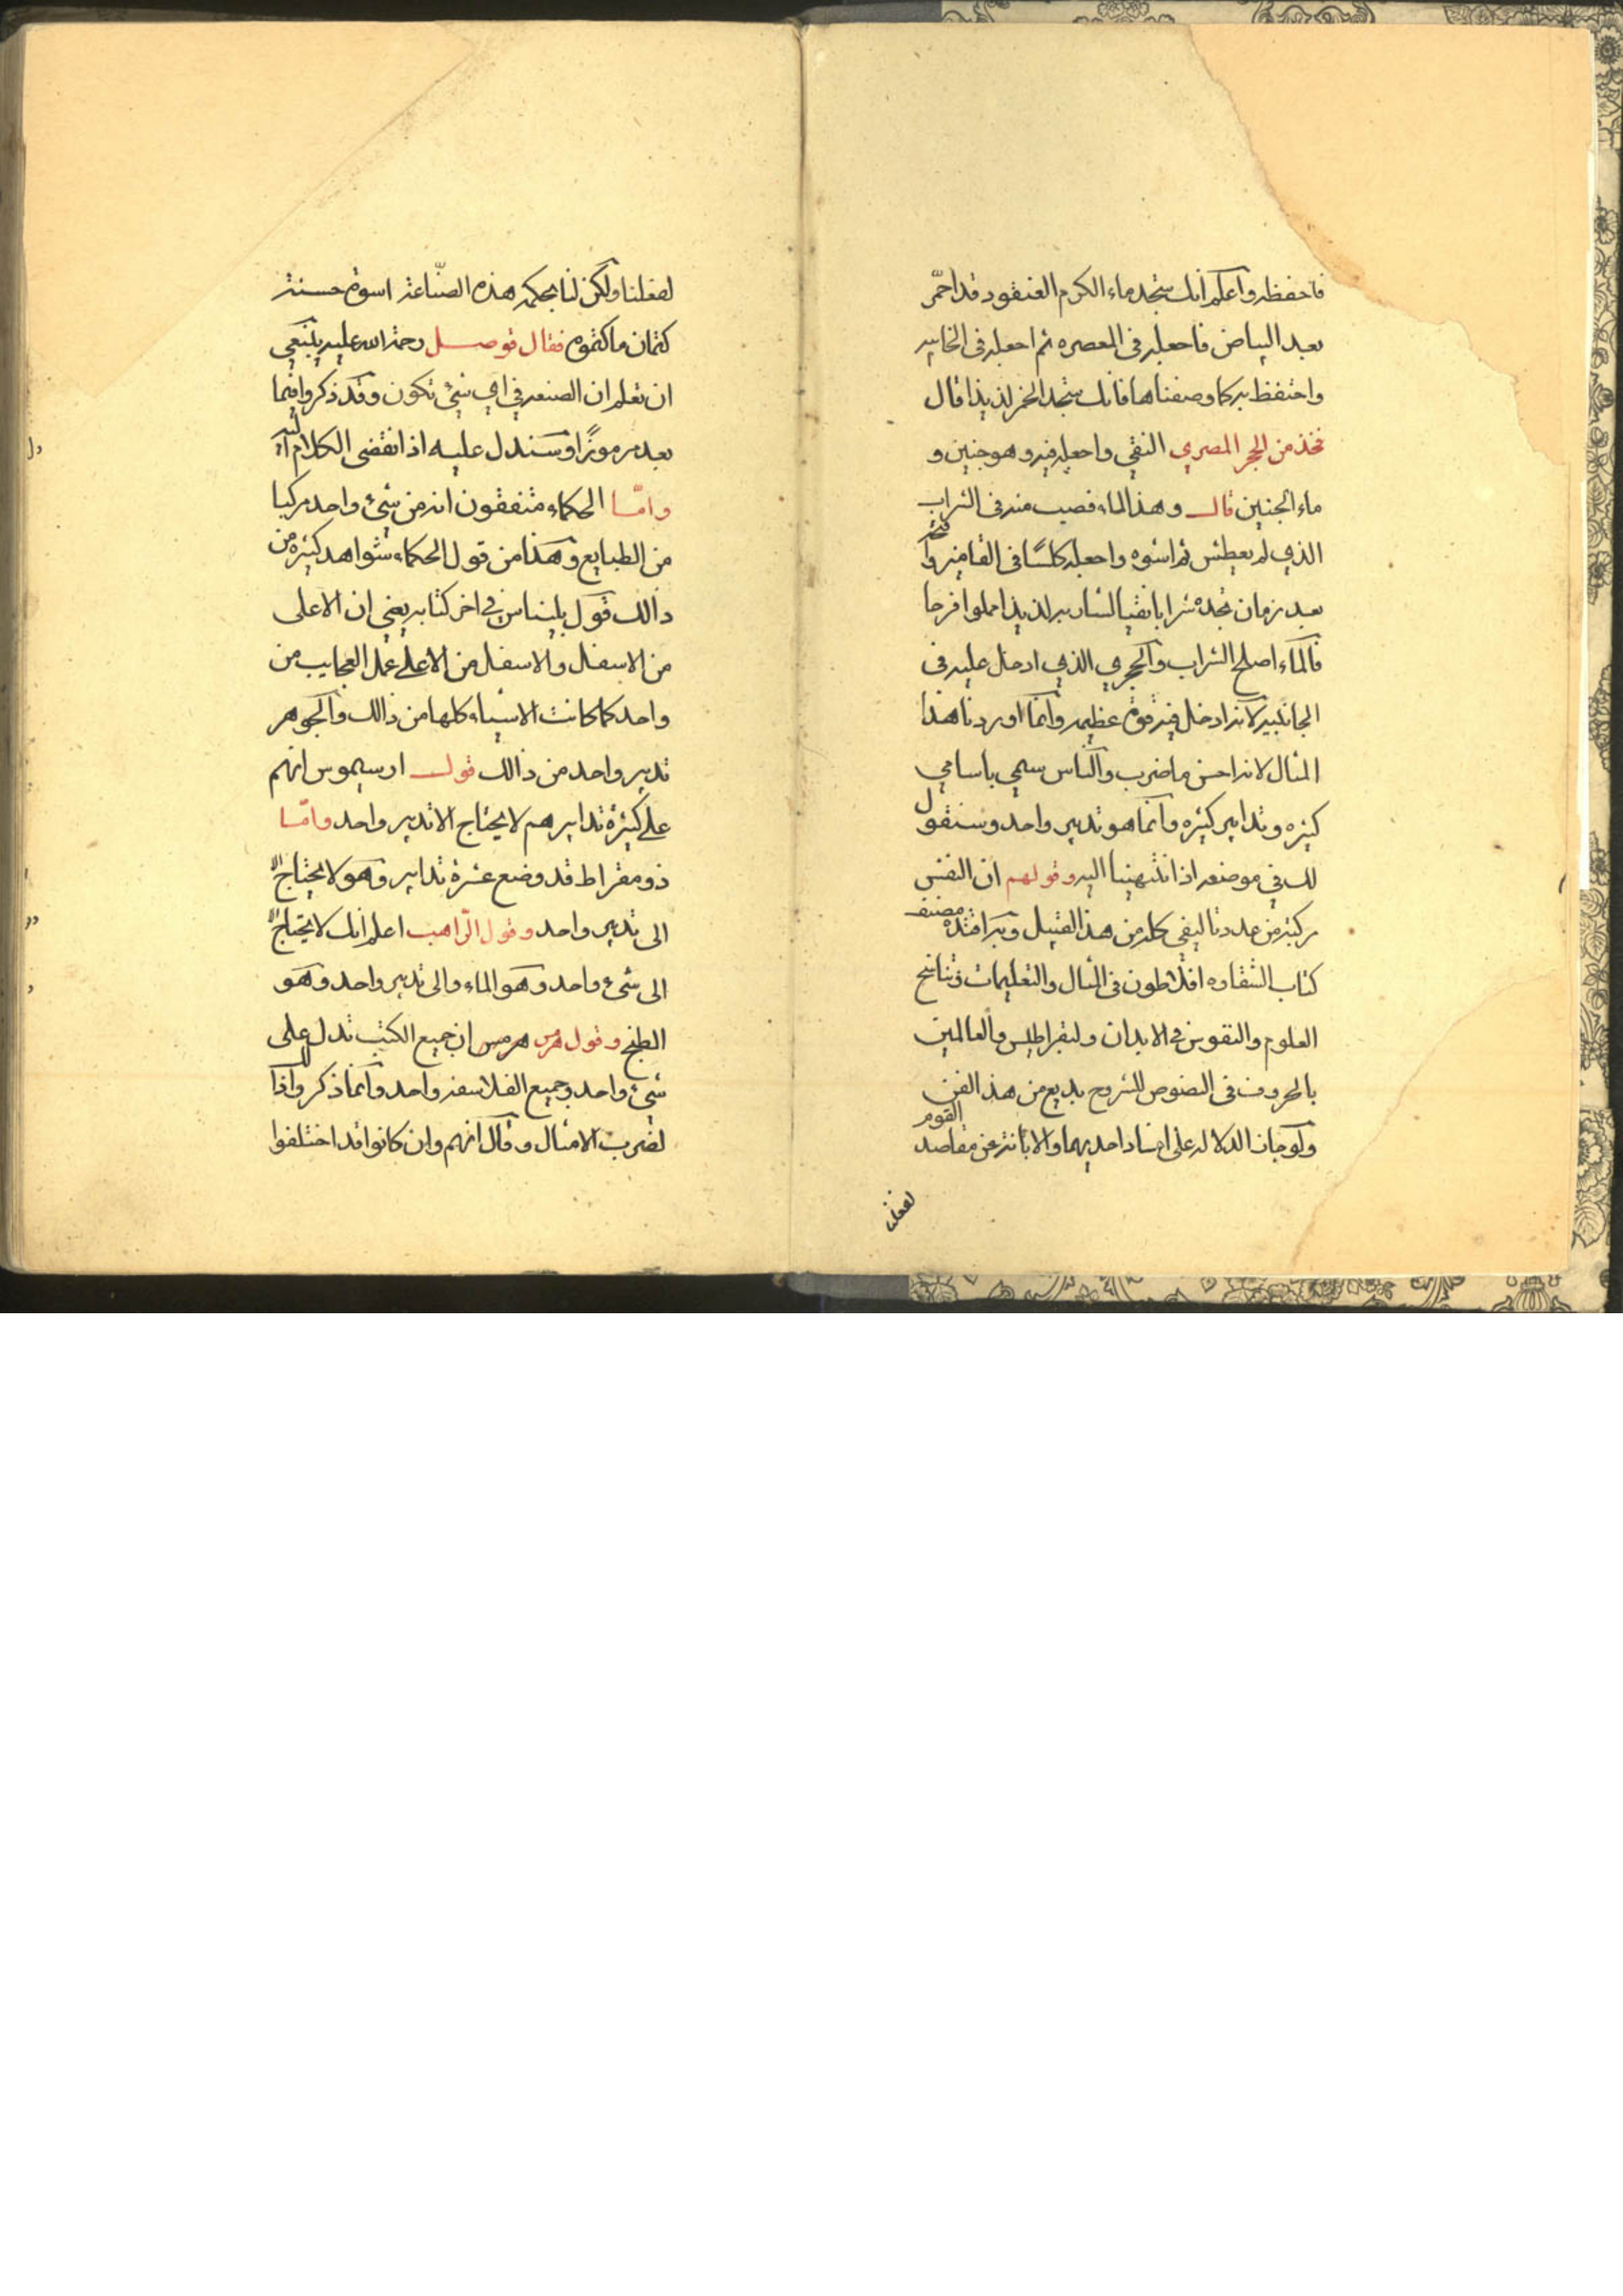 فاحفظه واعلم انك ستجد ماء الكرم العنقود قد احمّر
بعد البياض فاجعله فى المعصره ثم اجعله فى الخابيه
واحتفظ به كما وصفناها فانك ستجد الخمر لذيذا قال
فخذ من الحجر المصري النقي واجعله فيه وهو جنين و
ماء الجنين قال وهذ الماء فصب منه فى التراب
الذي لم يعطش ثم اشوه واجعله كلسًا فى القانيه وا
بعد زمان تجده شرابا نقيا لشاربه لذيذا مملوا فرحا
فالماء اصلح الشراب والحجري الذي ادخل عليه فى
الجانبيه لانه ادخل فيه قوة عظيمه وانما اوردنا هذا
المثال لانه احسن ما ضرب والناس سمي باسامي
كثيره وتدابير كثيره وانما هو تدبير واحد وسنقول
لك في موضعه اذا انتهينا اليه وقولهم ان النفس
مركبه من عدد تاليفي كله من هذ القبيل
كتاب افلاطون فى المثال والتعليمات
العلوم والنفوس في الابدان ولبقراطيس والعالمين
بالحروف فى النصوص للشروح بديع من هذ الفن
ولو جاز الدلاله على احديهما والابانة عن مقاصد القوم
لفعلنا
لفعلنا ولكن لنا بحكمة هذه الصنّاعة اسوة حسنة
كتمان ما كتموه فقال فوصل رحمة الله عليه ينبغي
ان تعلم ان الصنعه في اي شئ تكون وقد ذكروا فيما
بعد مرموزًا وسندل عليه اذا انقضى الكلام اليه
وامّا الحكماء متفقون انه من شئ واحد مركبا
من الطبايع وهذا من قول الحكماء شواهد كثيره من
ذالك قول بليناس في اخر كتابه يعني ان الاعلى
من الاسفل والاسفل من الاعلے عمل العجايب من
واحد كما كانت الاشياء كلها من ذالك والجوهر
تدبير واحد من ذالك قول ارسيموس انهم
علے كثرة تدابيرهم لا يحتاج الا تدبير واحد وامّا
ذومقراط قد وضع عشرة تدابير وهو لا يحتاج الا
الى تدبير واحد وقول الراهب اعلم انك لا تحتاج الا
الى شئ واحد وهو الماء والى تدبير واحد وهو
الطبخ وقول هرمس هرمس ان جميع الكتب تدل على
شئ واحد وجميع الفلاسفه واحد وانما ذكروا ذالك
لضرب الامثال وقال انهم وان كانوا قد اختلفوا